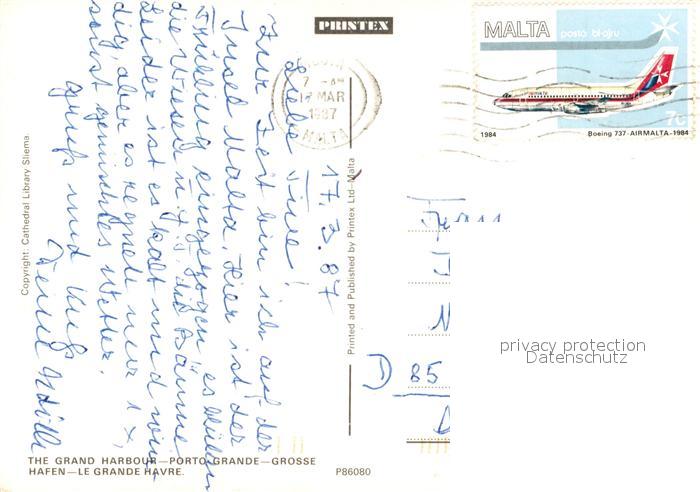 PRINTEX
17.3.87
Liebe
Zur Zeit bin ich auf der
Insel Malta. Hier ist der
Frühling eingezogen, es blühen
die Wiesen u. z.T. die Bäume
Leider ist es kalt und win-
dig, aber es regnet nur 1 x,
sonst gemischtes Wetter.
Gruß und Kuß
Copyright: Cathedral Library Sliema.
THE GRAND HARBOUR—PORTO GRANDE—GROSSE
HAFEN—LE GRANDE HAVRE.
P86080
Printed and Published by Printex Ltd—Malta
MAR
1987
MALTA
MALTA posta bl-ajru
7c
1984 Boeing 737-AIRMALTA-1984
D 85
privacy protection
Datenschutz